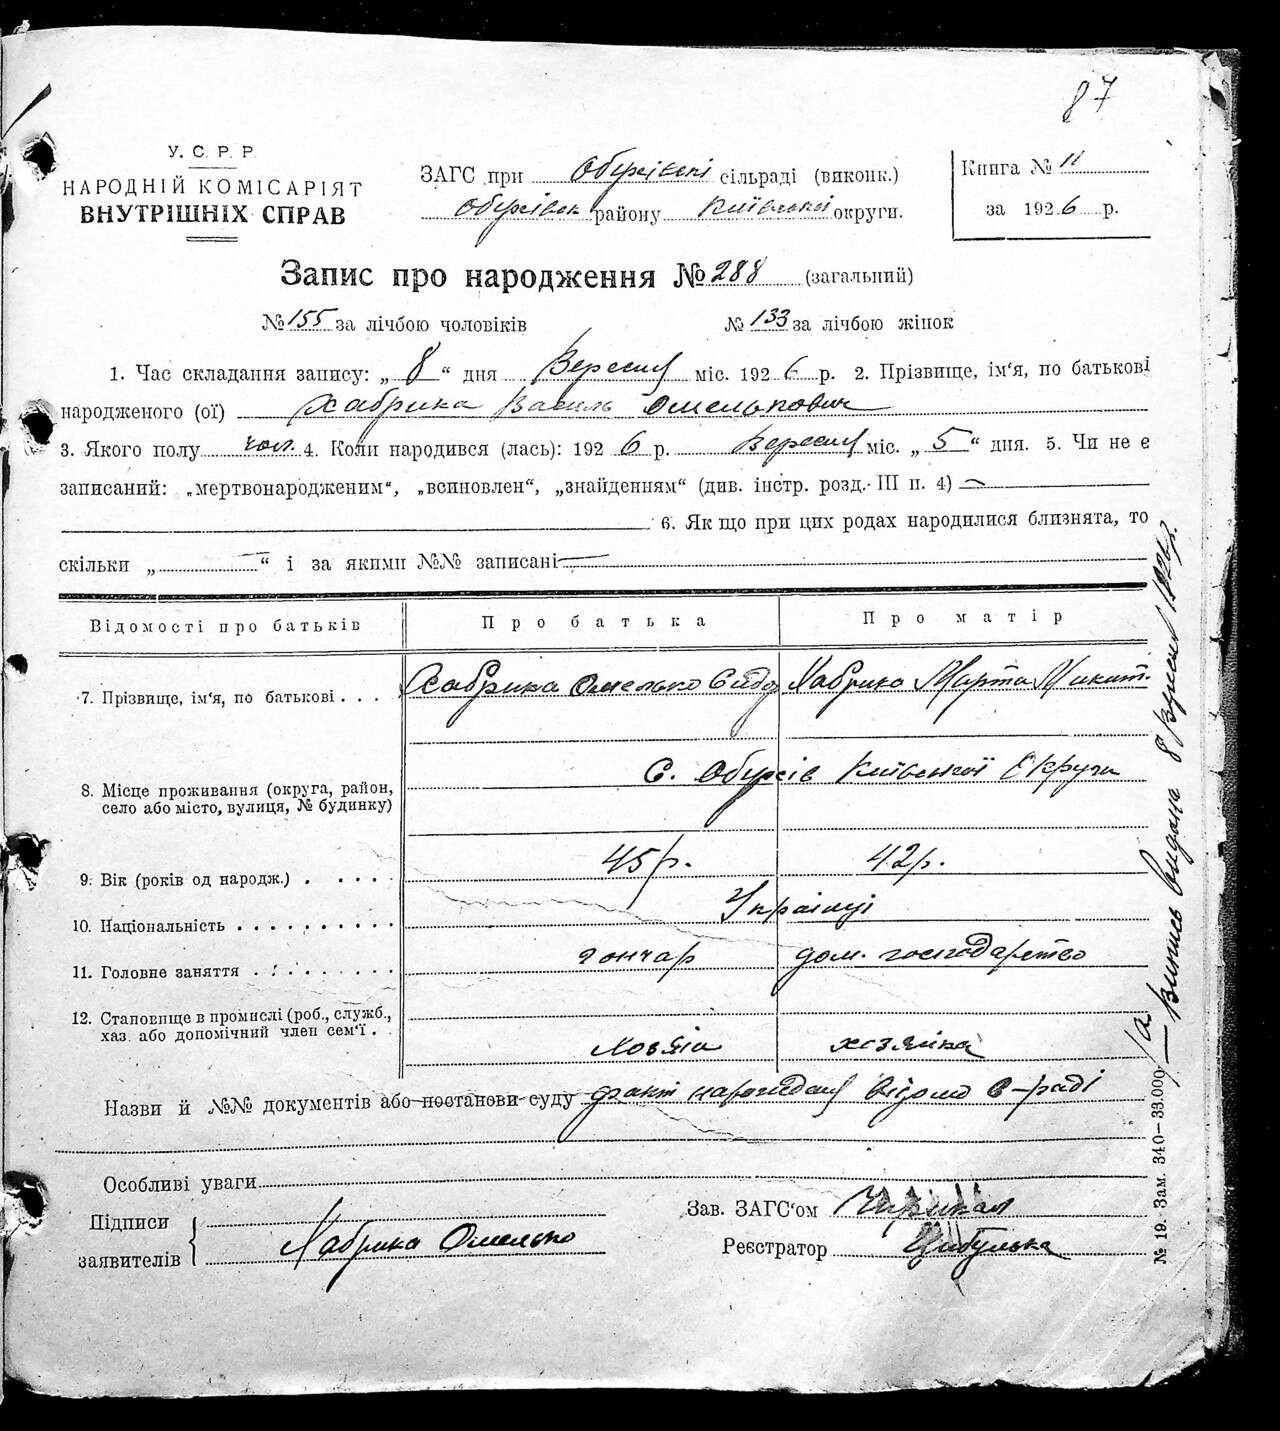 87
У. С. Р. Р.
НАРОДНІЙ КОМІСАРІЯТ
ВНУТРІШНІХ СПРАВ
ЗАГС при Обухівські сільраді (виконк.)
Обухівськ району Київської округи.
Книга № 11
за 1926 р.
Запис про народження № 288 (загальний)
№ 155 за лічбою чоловіків № 133 за лічбою жінок
1. Час складання запису: „ 8 “ дня Вересня міс. 1926 р. 2. Прізвище, ім'я, по батькові
народженого (ої) Хабрика Василь Омелькович
3. Якого полу чол. 4. Коли народився (лась): 1926 р. Вересня міс. „ 5 “ дня. 5. Чи не є
записаний: „мертвонародженим“, „всиновлен“, „знайденням“ (див. інстр. розд. III п. 4) —
6. Якщо при цих родах народилися близнята, то
скільки „ — “ і за якими №№ записані —
Відомості про батьків Про батька Про матір
7. Прізвище, ім'я, по батькові . . . Хабрика Омелько Сидо Хабрика Марта Микит.
8. Місце проживання (округа, район,
село або місто, вулиця, № будинку) С. Обухів Київської Округи
9. Вік (років од народж.) . . . . . 45 р. 42 р.
10. Національність . . . . . . . . . . Українці
11. Головне заняття . . . . . . . . гончар дом. господарство
12. Становище в промислі (роб., служб.,
хаз. або допомічний член сем'ї . . Хозяін хозяйка
Назви й №№ документів або постанови суду факт народження відомо С-раді
Особливі уваги
Підписи
заявителів
Хабрика Омелько
Зав. ЗАГС'ом
Реєстратор Цибулька
№ 19. Зам. 340—33.000
Випись видана 8 1926 р.